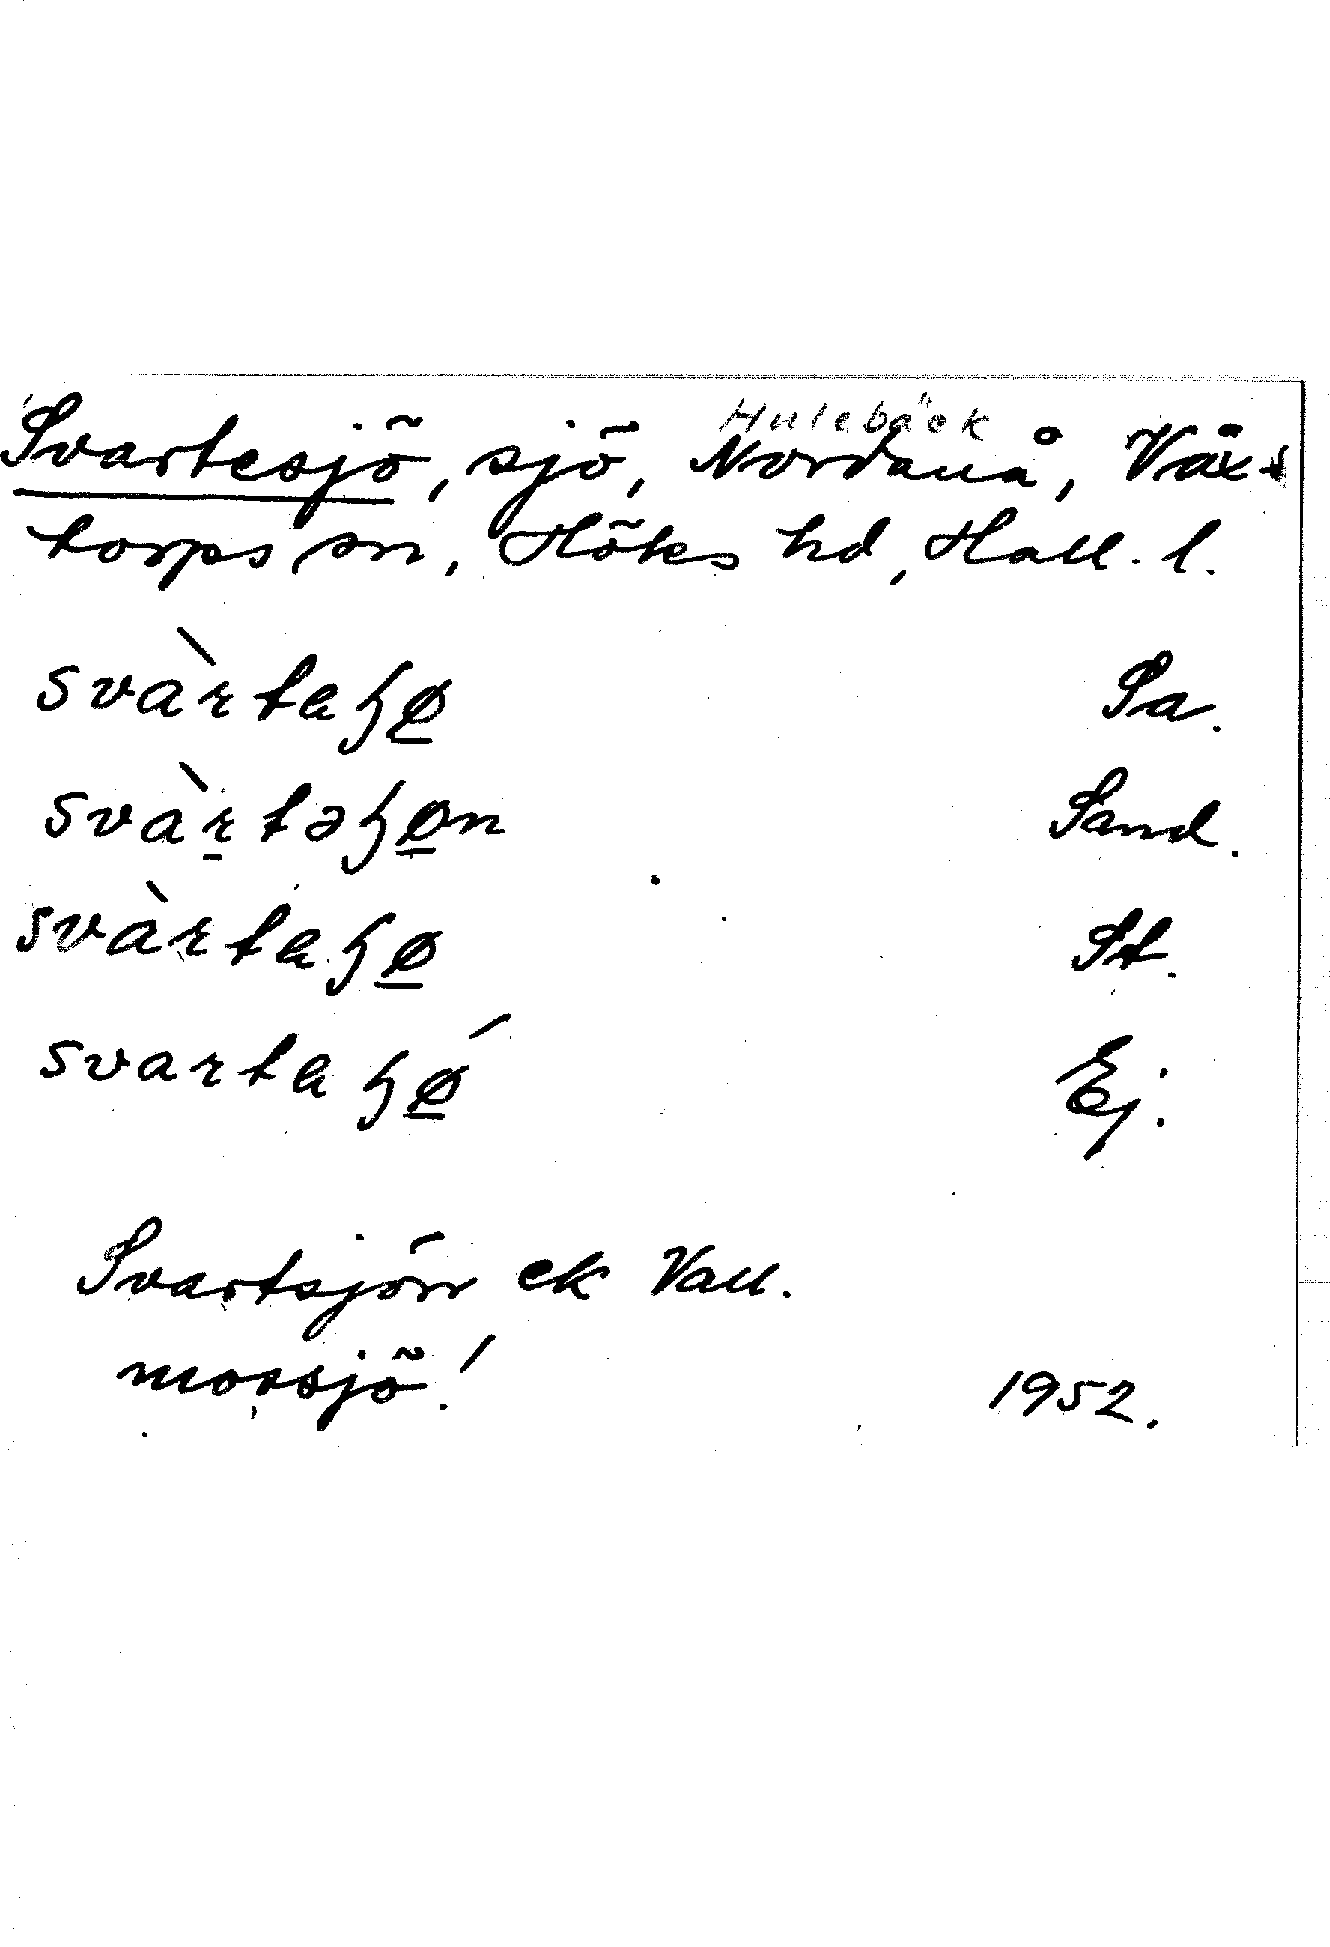 Hulebäck
Svartesjö, sjö, Nordanå, Växs
torps sn, Höks hd, Hall. l.
svàrtaɧø̱ Sa.
svàr̠təɧø̱n Sand.
svàrtaɧø̱ St.
svartaɧǿ̱ Ej.
Svartsjön ek Vall.
mossjö! 1952.